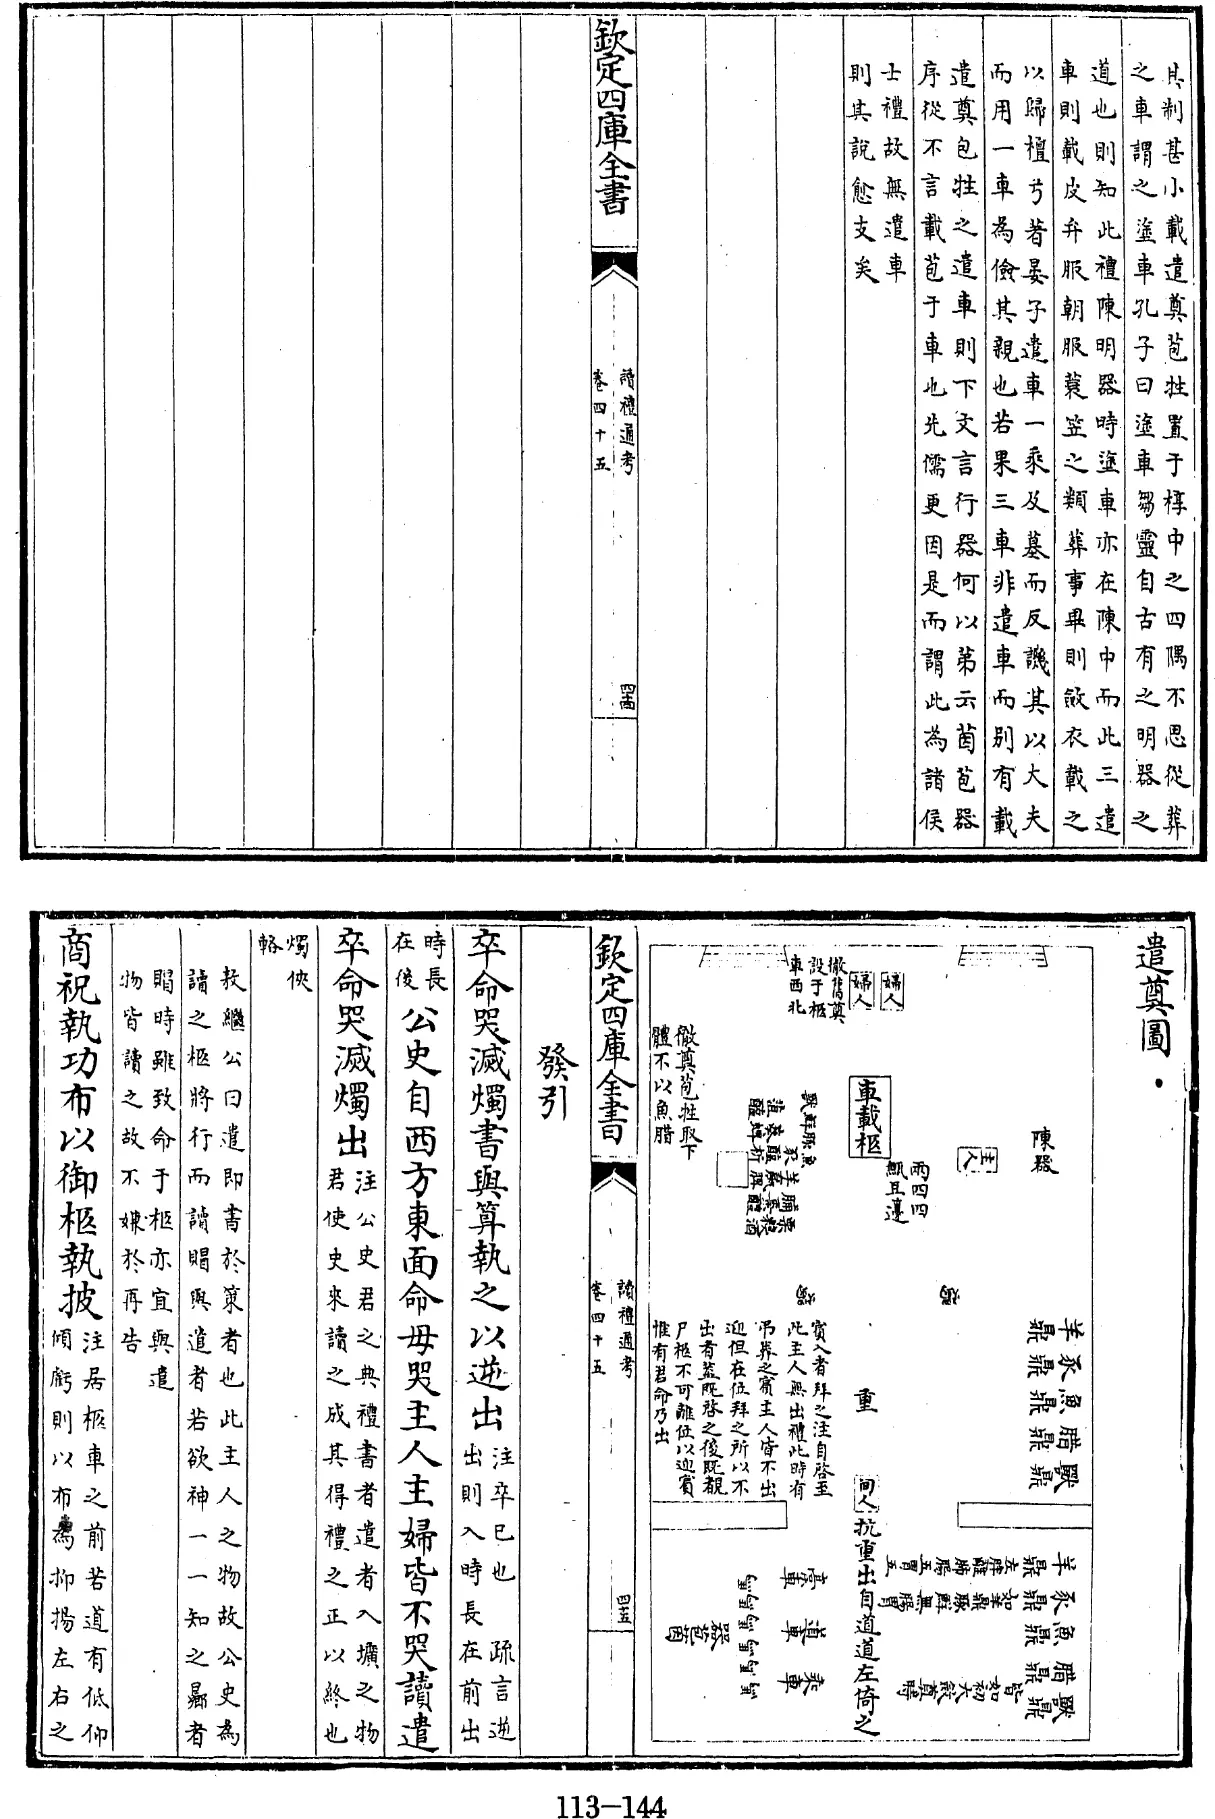 其制甚小載遣奠苞牲置于椁中之四隅不思從葬
之車謂之塗車孔子曰塗車芻靈自古有之明器之
道也則知此禮陳明器時塗車亦在陳中而此三遣
車則載皮弁服朝服蓑笠之類葬事畢則斂衣載之
以歸檀弓著晏子遣車一乘及墓而反譏其以大夫
而用一車為儉其親也若果三車非遣車而別有載
遣奠包牲之遣車則下文言行器何以第云茵苞器
序從不言載苞于車也先儒更因是而謂此為諸侯
士禮故無遣車
則其說愈支矣
欽定四庫全書
讀禮通考
卷四十五
四十四
遣奠圖
陳器
主人
婦人
婦人
車載柩
徹舊奠
設于柩
車西北
徹奠苞牲取下
體不以魚腊
兩四四
甒豆籩
羊豕魚腊獸
鼎鼎鼎鼎鼎
重
賓入者拜之注自啓至
此主人無出禮此時有
弔葬之賓主人皆不出
迎但在位拜之所以不
出者葢既啓之後既覩
尸柩不可離位以迎賓
惟有君命乃出
間人
抗重出自道道左倚之
羊豕魚腊獸
鼎鼎鼎鼎鼎
皆如初大斂奠時
乘車
道車
槀車
器苞茵
欽定四庫全書
讀禮通考
卷四十五
四十五
發引
卒命哭滅燭書與算執之以逆出注卒已也 疏言逆
出則入時長在前出
時長
在後公史自西方東面命毋哭主人主婦皆不哭讀遣
卒命哭滅燭出注公史君之典禮書者遣者入壙之物
君使史來讀之成其得禮之正以終也
燭俠
輅
敖繼公曰遣即書於策者也此主人之物故公史為
讀之柩將行而讀賵與遣者若欲神一一知之㬎者
賵時雖致命于柩亦宜與遣
物皆讀之故不嫌於再告
商祝執功布以御柩執披注居柩車之前若道有低仰
傾虧則以布為抑揚左右之
113—144